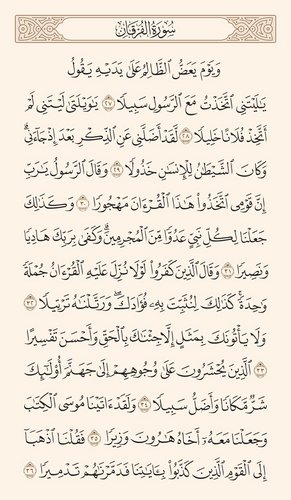 سُورَةُ الْفُرْقَانِ
وَيَوْمَ يَعَضُّ ٱلظَّالِمُ عَلَىٰ يَدَيْهِ يَقُولُ
يَٰلَيْتَنِي ٱتَّخَذْتُ مَعَ ٱلرَّسُولِ سَبِيلًا ٢٧ يَٰوَيْلَتَىٰ لَيْتَنِي لَمْ
أَتَّخِذْ فُلَانًا خَلِيلًا ٢٨ لَّقَدْ أَضَلَّنِي عَنِ ٱلذِّكْرِ بَعْدَ إِذْ جَآءَنِيۗ
وَكَانَ ٱلشَّيْطَٰنُ لِلْإِنسَٰنِ خَذُولًا ٢٩ وَقَالَ ٱلرَّسُولُ يَٰرَبِّ
إِنَّ قَوْمِي ٱتَّخَذُوا۟ هَٰذَا ٱلْقُرْءَانَ مَهْجُورًا ٣٠ وَكَذَٰلِكَ
جَعَلْنَا لِكُلِّ نَبِيٍّ عَدُوًّا مِّنَ ٱلْمُجْرِمِينَۗ وَكَفَىٰ بِرَبِّكَ هَادِيًا
وَنَصِيرًا ٣١ وَقَالَ ٱلَّذِينَ كَفَرُوا۟ لَوْلَا نُزِّلَ عَلَيْهِ ٱلْقُرْءَانُ جُمْلَةً
وَٰحِدَةًۚ كَذَٰلِكَ لِنُثَبِّتَ بِهِۦ فُؤَادَكَۖ وَرَتَّلْنَٰهُ تَرْتِيلًا ٣٢
وَلَا يَأْتُونَكَ بِمَثَلٍ إِلَّا جِئْنَٰكَ بِٱلْحَقِّ وَأَحْسَنَ تَفْسِيرًا
٣٣ ٱلَّذِينَ يُحْشَرُونَ عَلَىٰ وُجُوهِهِمْ إِلَىٰ جَهَنَّمَ أُو۟لَٰٓئِكَ
شَرٌّ مَّكَانًا وَأَضَلُّ سَبِيلًا ٣٤ وَلَقَدْ ءَاتَيْنَا مُوسَى ٱلْكِتَٰبَ
وَجَعَلْنَا مَعَهُۥٓ أَخَاهُ هَٰرُونَ وَزِيرًا ٣٥ فَقُلْنَا ٱذْهَبَآ
إِلَى ٱلْقَوْمِ ٱلَّذِينَ كَذَّبُوا۟ بِـَٔايَٰتِنَا فَدَمَّرْنَٰهُمْ تَدْمِيرًا ٣٦